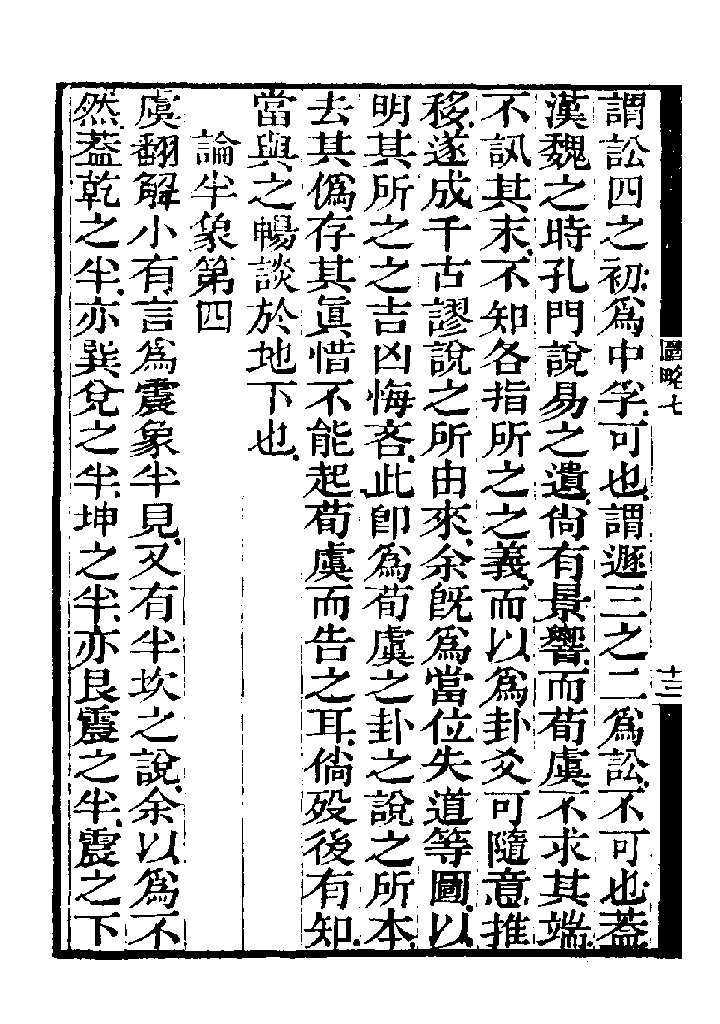 謂訟四之初爲中孚可也謂遯三之二爲訟不可也蓋
漢魏之時孔門說易之遺尙有景響而荀虞不求其端
不訊其末不知各指所之之義而以爲卦爻可隨意推
移遂成千古謬說之所由來余旣爲當位失道等圖以
明其所之之吉凶悔吝此卽爲荀虞之卦之說之所本
去其僞存其眞惜不能起荀虞而告之耳倘歿後有知
當與之暢談於地下也
論半象第四
虞翻解小有言爲震象半見又有半坎之說余以爲不
然蓋乾之半亦巽兌之半坤之半亦艮震之半震之下
圖略七
十三